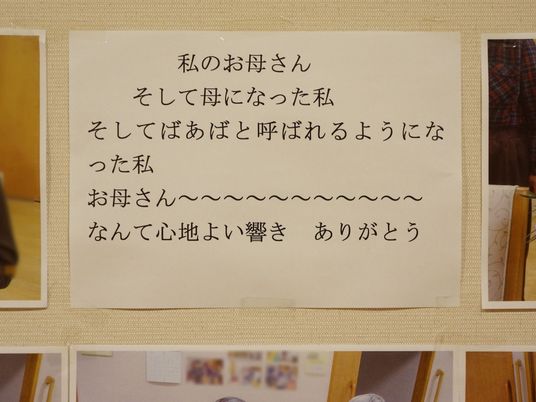 私のお母さん
そして母になった私
そしてばあばと呼ばれるようにな
った私
お母さん〜〜〜〜〜〜〜〜〜〜〜
なんて心地よい響き　ありがとう